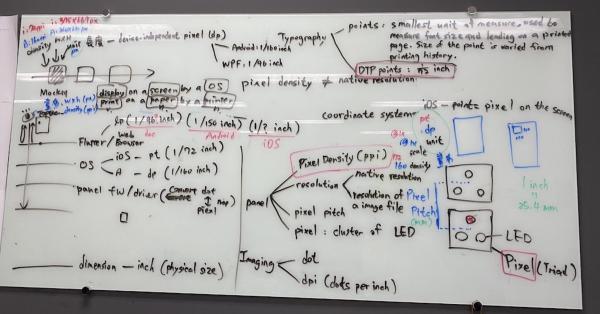 density
長度 - device-independent pixel (dp)
Android: 1/160 inch
WPF: 1/96 inch
Typography
points: smallest unit of measure, used to
measure font size and leading on a printed
page. Size of the point is varied from
printing history.
DTP points: 1/72 inch
pixel density ≠ native resolution
Mockup
display on a screen by a OS
print on a paper by a printer
dp (1/96 inch) (1/160 inch) (1/? inch)
Web
Android
iOS
Flutter/Browser
OS
iOS - pt (1/72 inch)
A - dp (1/160 inch)
panel FW/driver (convert dot
map
dimension - inch (physical size)
coordinate system
iOS - points pixel on the screen
pt
dp
unit
scale
160 density
panel
Pixel Density (ppi)
resolution
native resolution
resolution of
a image file
pixel pitch
pixel: cluster of LED
Pixel
Pitch
(mm)
1 inch
25.4 mm
LED
Pixel (Triad)
Imaging
dot
dpi (dots per inch)